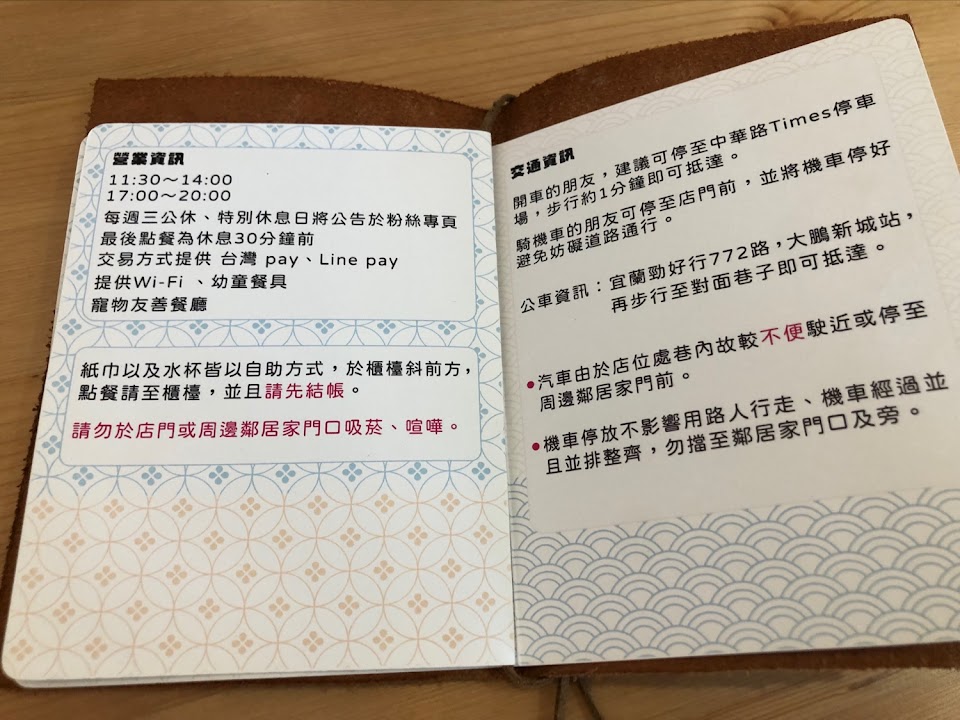 營業資訊
11:30～14:00
17:00～20:00
每週三公休、特別休息日將公告於粉絲專頁
最後點餐為休息30分鐘前
交易方式提供 台灣 pay、Line pay
提供Wi-Fi 、幼童餐具
寵物友善餐廳
紙巾以及水杯皆以自助方式，於櫃檯斜前方，
點餐請至櫃檯，並且請先結帳。
請勿於店門或周邊鄰居家門口吸菸、喧嘩。
交通資訊
開車的朋友，建議可停至中華路Times停車
場，步行約1分鐘即可抵達。
騎機車的朋友可停至店門前，並將機車停好
避免妨礙道路通行。
公車資訊：宜蘭勁好行772路，大鵬新城站，
再步行至對面巷子即可抵達。
•汽車由於店位處巷內故較不便駛近或停至
周邊鄰居家門前。
•機車停放不影響用路人行走、機車經過並
且並排整齊，勿擋至鄰居家門口及旁。